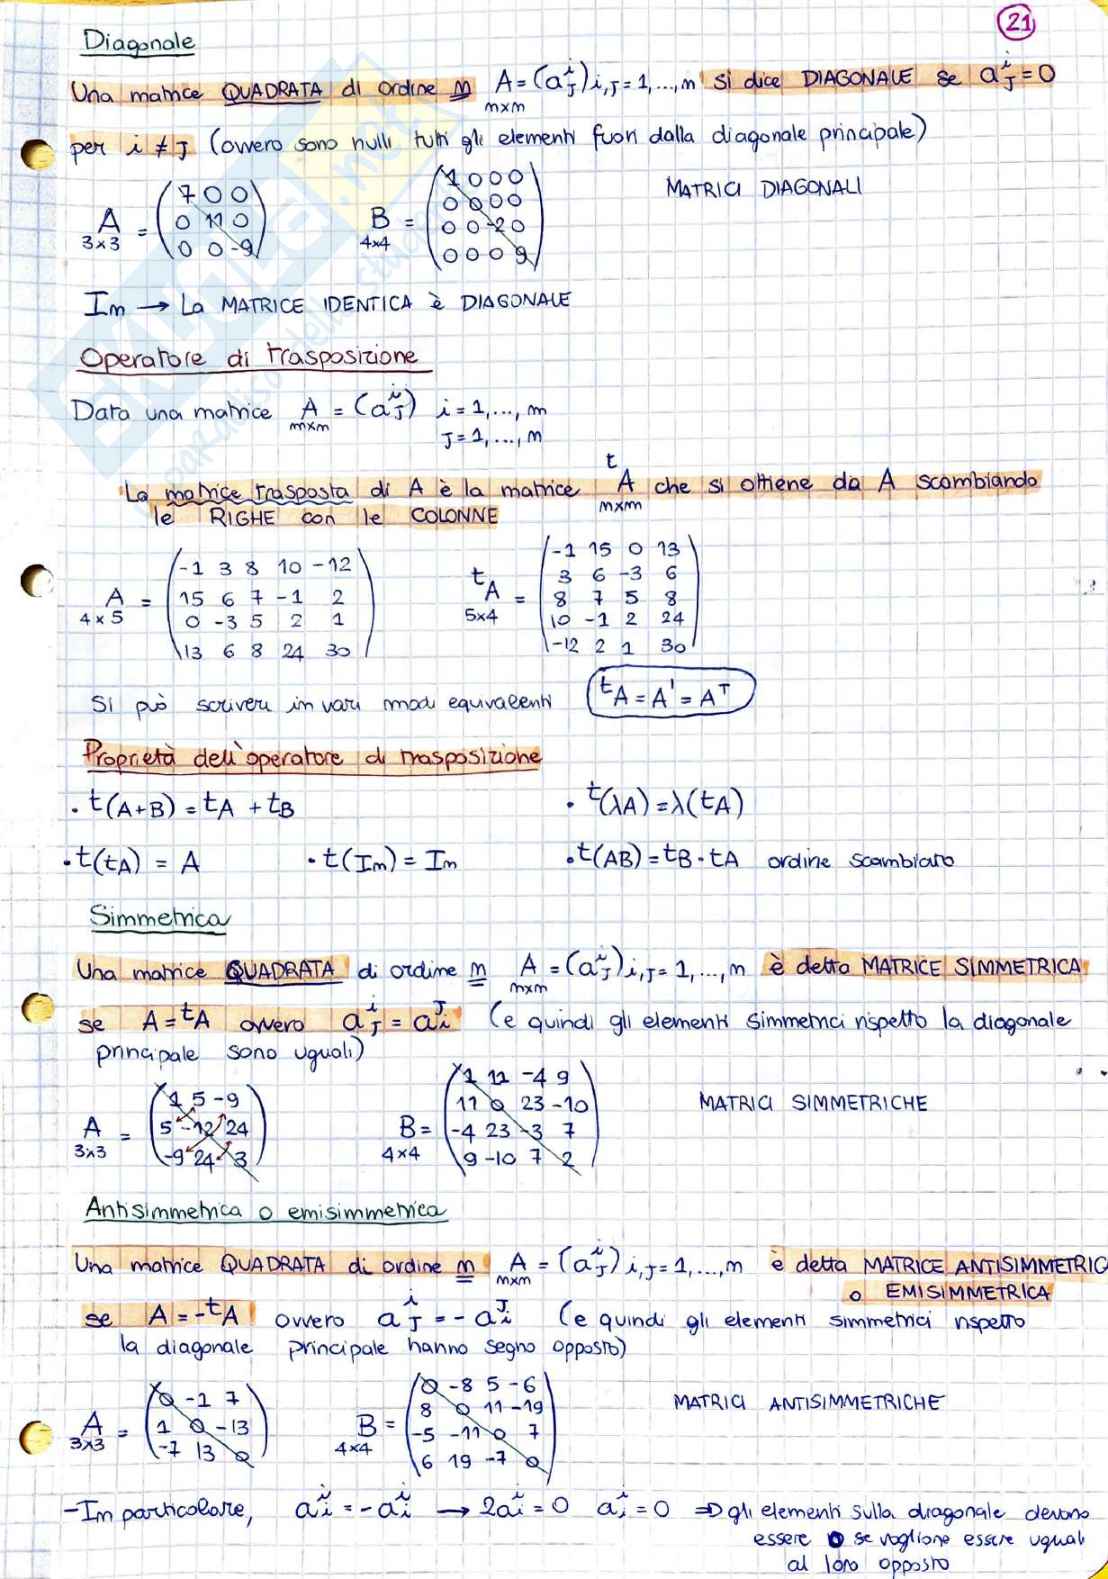 21
Diagonale
Una matrice QUADRATA di ordine n A = (a^i_j) i,j = 1,...,n si dice DIAGONALE se a^i_j = 0
n×n
per i ≠ j (ovvero sono nulli tutti gli elementi fuori dalla diagonale principale)
A = (7 0 0 B = (1 0 0 0 MATRICI DIAGONALI
3×3 0 11 0 4×4 0 0 0 0
0 0 -9) 0 0 -2 0
0 0 0 9)
In → La MATRICE IDENTICA è DIAGONALE
Operatore di trasposizione
Data una matrice A = (a^i_j) i = 1,..., m
m×n j = 1,..., n
La matrice trasposta di A è la matrice tA che si ottiene da A scambiando
n×m
le RIGHE con le COLONNE
A = (-1 3 8 10 -12 tA = (-1 15 0 13
4×5 15 6 7 -1 2 5×4 3 6 -3 6
0 -3 5 2 1 8 7 5 8
13 6 8 24 30) 10 -1 2 24
-12 2 1 30)
Si può scrivere in vari modi equivalenti tA = A' = A^T
Proprietà dell'operatore di trasposizione
· t(A+B) = tA + tB · t(λA) = λ(tA)
· t(tA) = A · t(In) = In · t(AB) = tB · tA ordine scambiato
Simmetrica
Una matrice QUADRATA di ordine n A = (a^i_j) i,j = 1,...,n è detta MATRICE SIMMETRICA
n×n
se A = tA ovvero a^i_j = a^j_i (e quindi gli elementi simmetrici rispetto la diagonale
principale sono uguali)
A = (1 5 -9 B = (1 11 -4 9 MATRICI SIMMETRICHE
3×3 5 -12 24 4×4 11 0 23 -10
-9 24 3) -4 23 -3 7
9 -10 7 2)
Antisimmetrica o emisimmetrica
Una matrice QUADRATA di ordine n A = (a^i_j) i,j = 1,...,n è detta MATRICE ANTISIMMETRIC
n×n o EMISIMMETRICA
se A = -tA ovvero a^i_j = -a^j_i (e quindi gli elementi simmetrici rispetto
la diagonale principale hanno segno opposto)
A = (0 -1 7 B = (0 -8 5 -6 MATRICI ANTISIMMETRICHE
3×3 1 0 -13 4×4 8 0 11 -19
-7 13 0) -5 -11 0 7
6 19 -7 0)
- In particolare, a^i_i = -a^i_i → 2a^i_i = 0 a^i_i = 0 ⇒ gli elementi sulla diagonale devono
essere 0 se vogliono essere uguali
al loro opposto